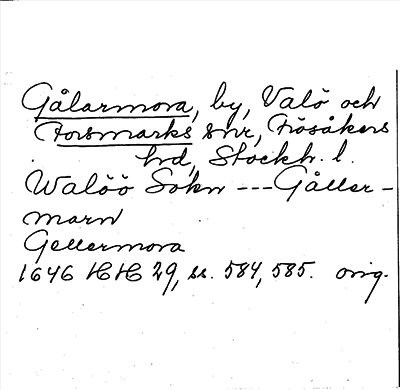 Gålarmora, by, Valö och
Forsmarks snr, Frösåkers
hd, Stockh. l.
Walöö Sokn --- Gåller-
marn
Gellermora
1646 HH 29, ss. 584, 585. orig.